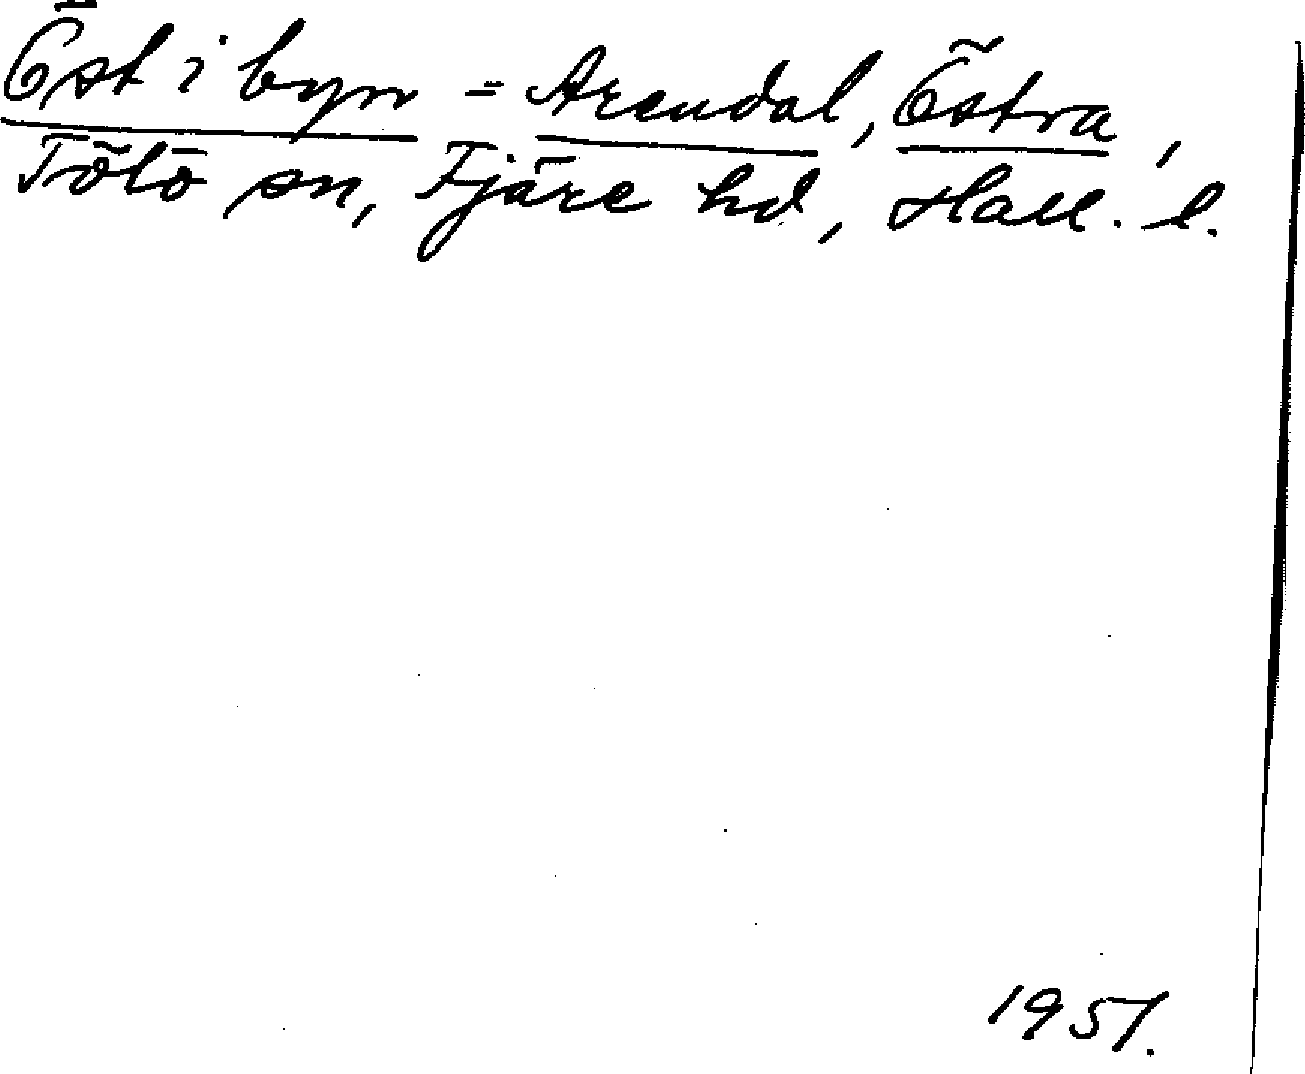 Öst i byn = Arendal, Östra,
Tölö sn, Fjäre hd, Hall. l.
1951.